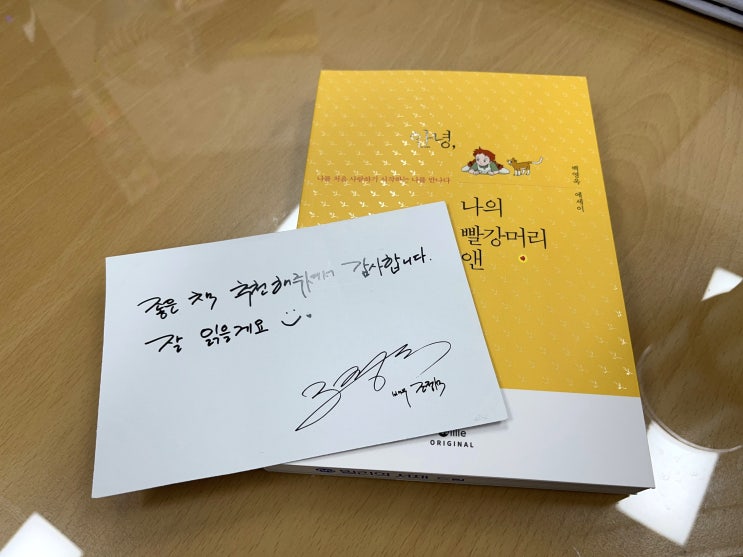 안녕,
나를 처음 사랑하기 시작하는 나를 만나다
백영옥 에세이
나의
빨강머리
앤
좋은 책 추천해주셔서 감사합니다.
잘 읽을게요
millie
ORIGINAL